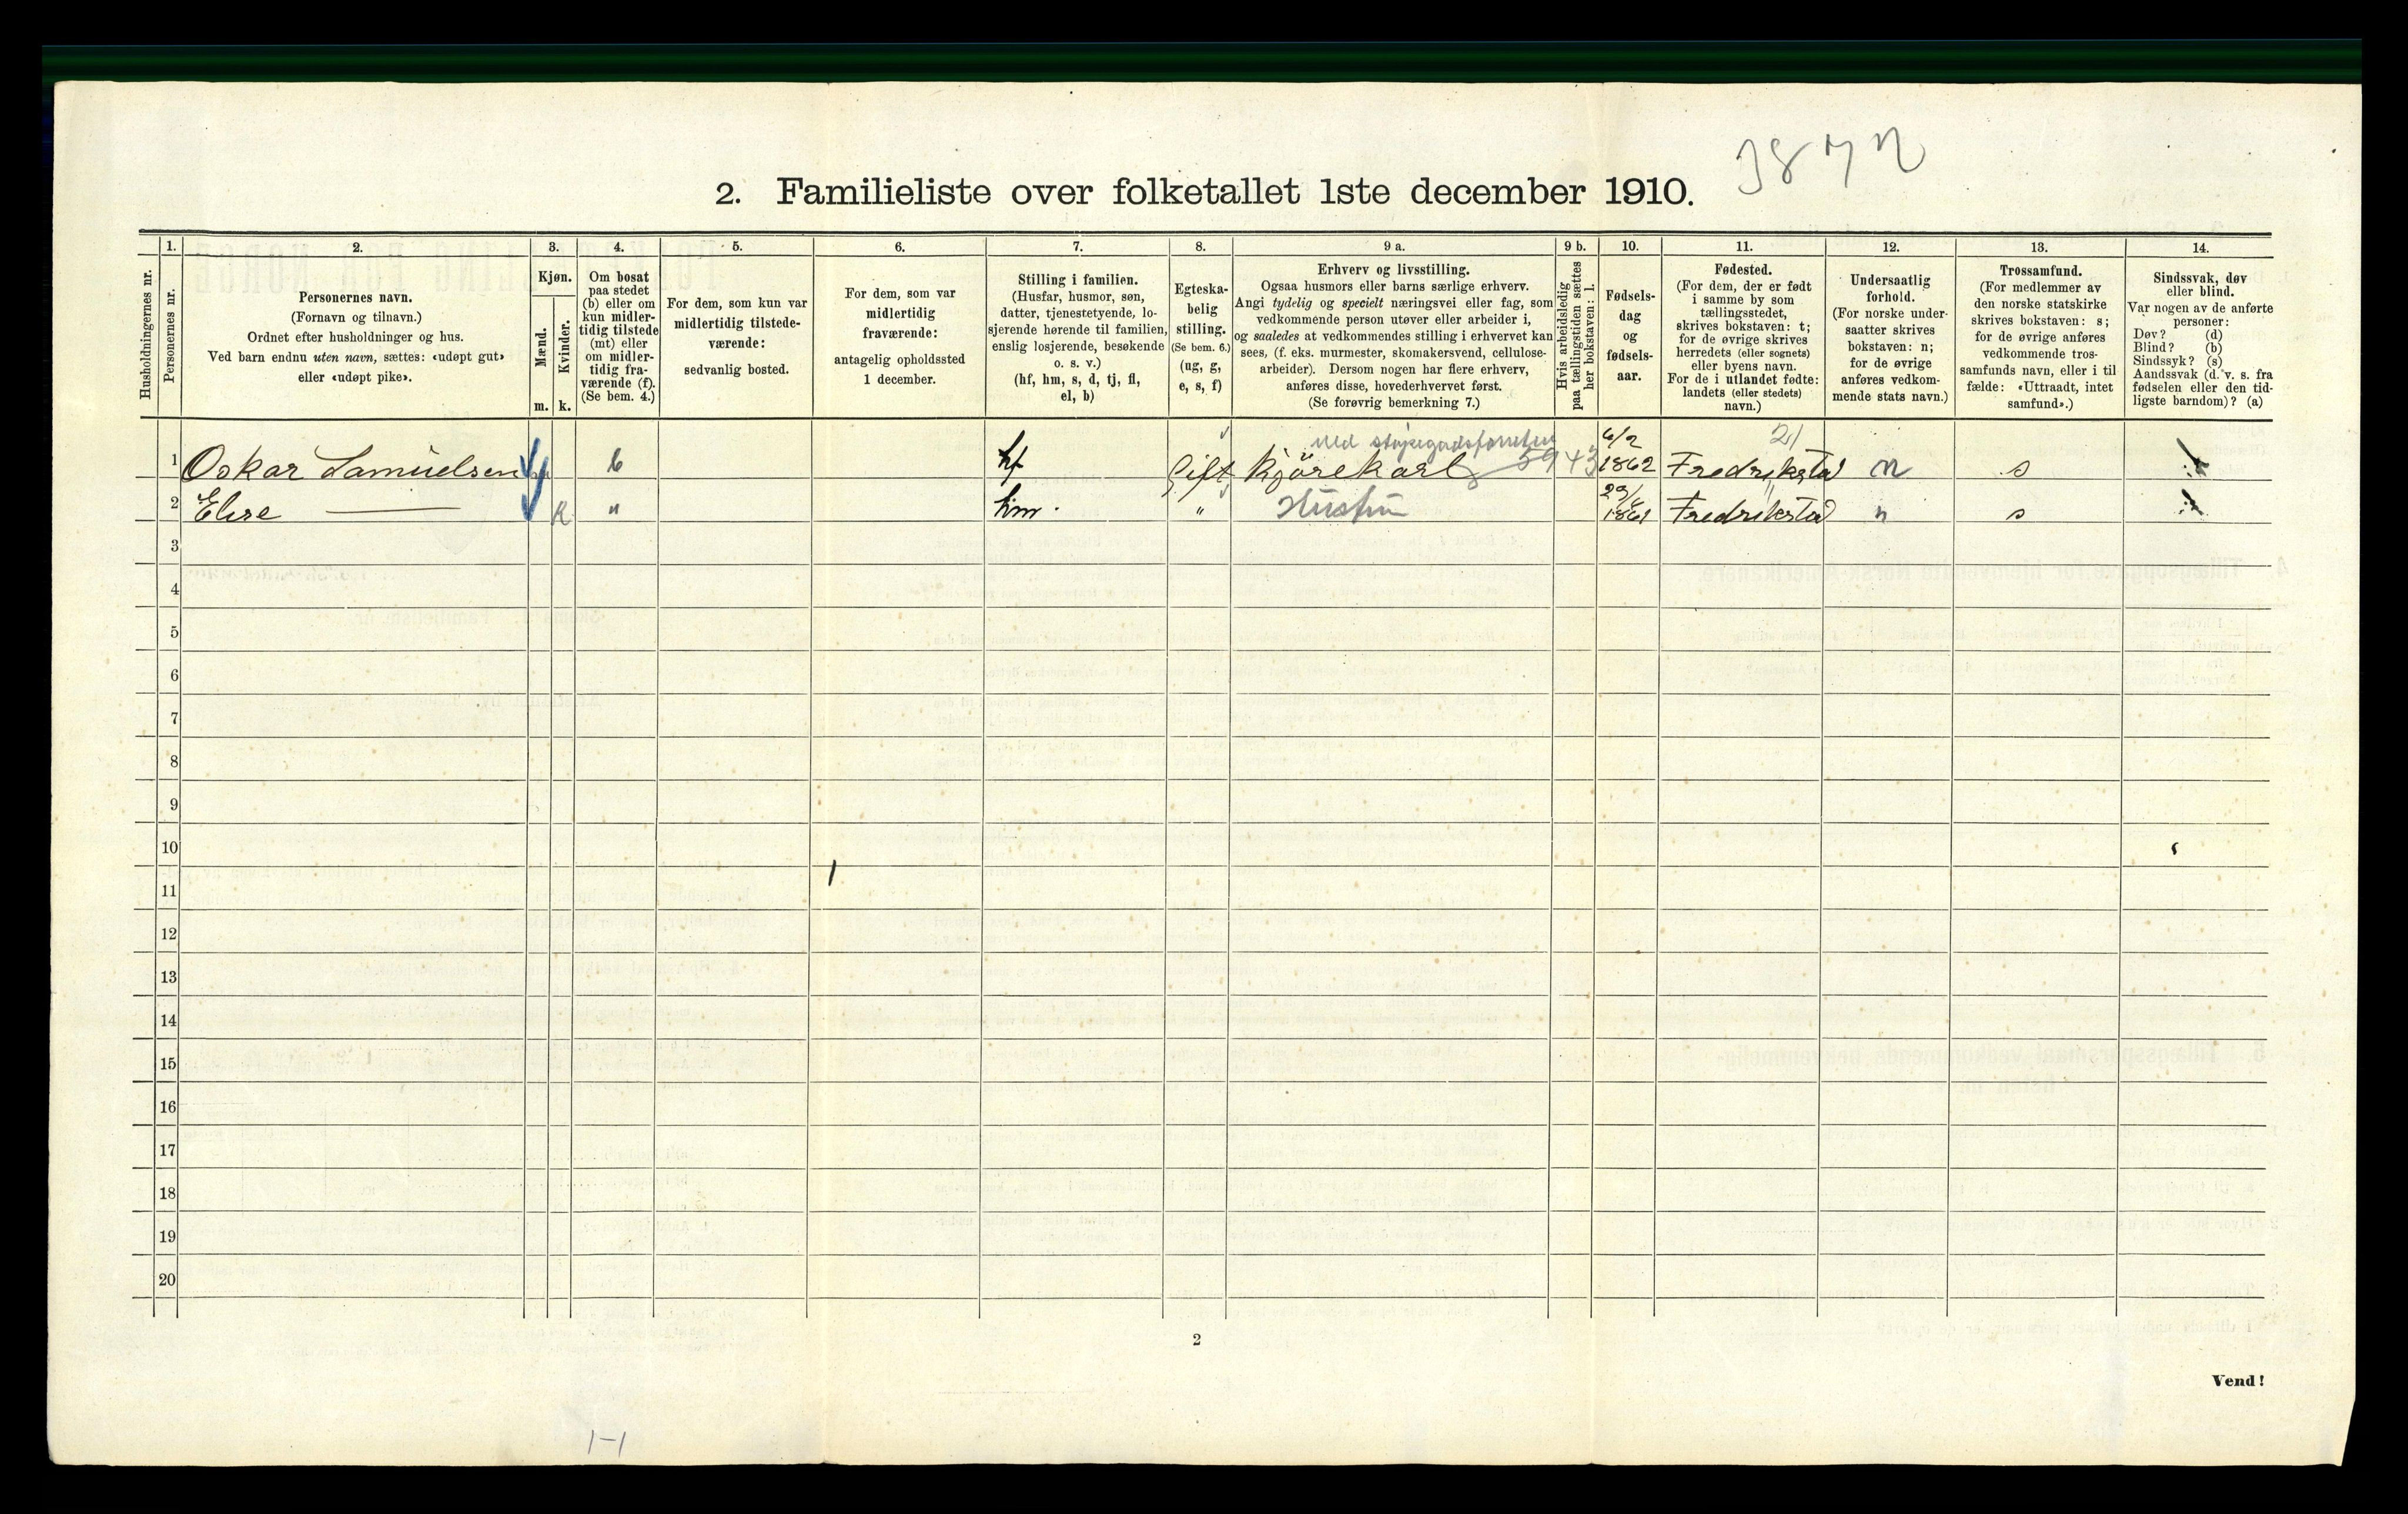 3872
2. Familieliste over folketallet 1ste december 1910.
Husholdningernes nr.
1.
Personernes nr.
2.
Personernes navn.
(Fornavn og tilnavn.)
Ordnet efter husholdninger og hus.
Ved barn endnu uten navn, sættes: «udøpt gut»
eller «udøpt pike».
3.
Kjøn.
Mænd.
m.
Kvinder.
k.
4.
Om bosat
paa stedet
(b) eller om
kun midler-
tidig tilstede
(mt) eller
om midler-
tidig fra-
værende (f).
(Se bem. 4.)
5.
For dem, som kun var
midlertidig tilstede-
værende:
sedvanlig bosted.
6.
For dem, som var
midlertidig
fraværende:
antagelig opholdssted
1 december.
7.
Stilling i familien.
(Husfar, husmor, søn,
datter, tjenestetyende, lo-
sjerende hørende til familien,
enslig losjerende, besøkende
o. s. v.)
(hf, hm, s, d, tj, fl,
el, b)
8.
Egteska-
belig
stilling.
(Se bem. 6.)
(ug, g,
e, s, f)
9 a.
Erhverv og livsstilling.
Ogsaa husmors eller barns særlige erhverv.
Angi tydelig og specielt næringsvei eller fag, som
vedkommende person utøver eller arbeider i,
og saaledes at vedkommendes stilling i erhvervet kan
sees, (f. eks. murmester, skomakersvend, cellulose-
arbeider). Dersom nogen har flere erhverv,
anføres disse, hovederhvervet først.
(Se forøvrig bemerkning 7.)
9 b.
Hvis arbeidsledig
paa tællingstiden sættes
her bokstaven: l.
10.
Fødsels-
dag
og
fødsels-
aar.
11.
Fødested.
(For dem, der er født
i samme by som
tællingsstedet,
skrives bokstaven: t;
for de øvrige skrives
herredets (eller sognets)
eller byens navn.
For de i utlandet fødte:
landets (eller stedets)
navn.)
12.
Undersaatlig
forhold.
(For norske under-
saatter skrives
bokstaven: n;
for de øvrige
anføres vedkom-
mende stats navn.)
13.
Trossamfund.
(For medlemmer av
den norske statskirke
skrives bokstaven: s;
for de øvrige anføres
vedkommende tros-
samfunds navn, eller i til
fælde: «Uttraadt, intet
samfund».)
14.
Sindssvak, døv
eller blind.
Var nogen av de anførte
personer:
Døv? (d)
Blind? (b)
Sindssyk? (s)
Aandssvak (d. v. s. fra
fødselen eller den tid-
ligste barndom)? (a)
1 Oskar Samuelsen b hf Gift Kjørekarl 59 43 6/2 1862 Fredrikstad n s
2 Elise — k " hm. " Hustru 1861 Fredrikstad n s
3
4
5
6
7
8
9
10
11
12
13
14
15
16
17
18
19
20
2
Vend!
1-1